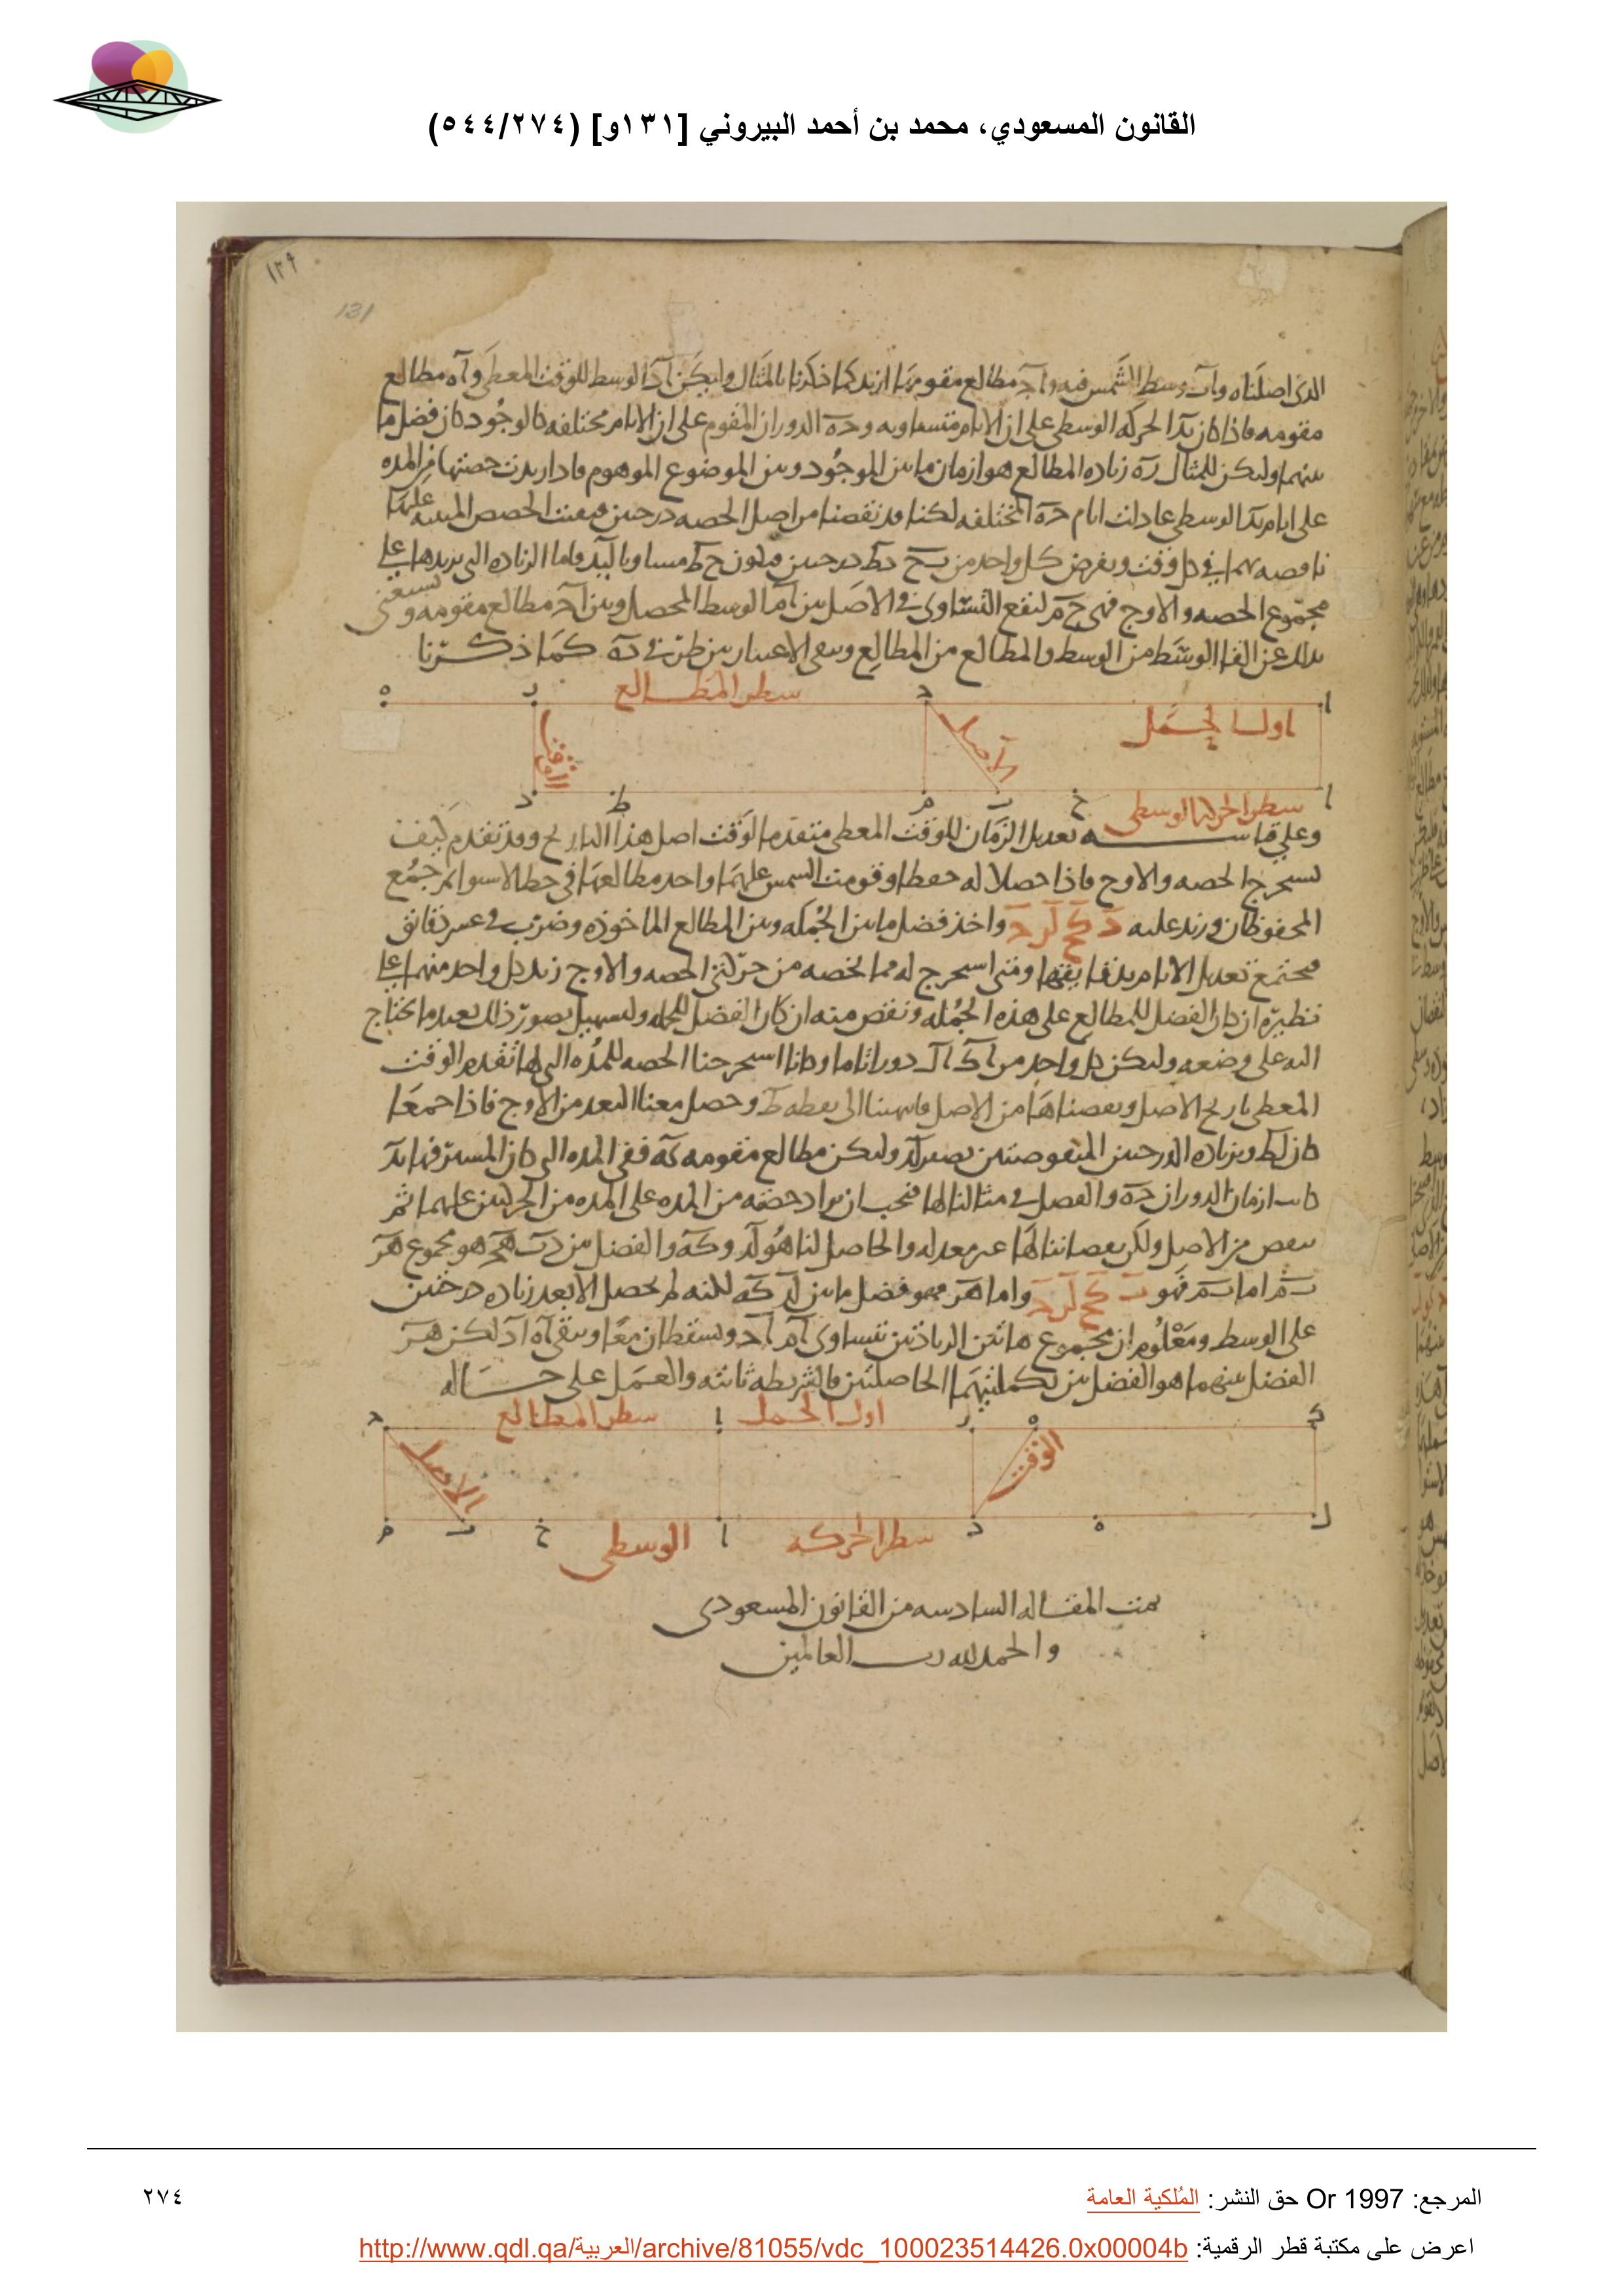 القانون المسعودي، محمد بن أحمد البيروني [١٣١و] (٥٤٤/٢٧٤)
١٢٩
131
الذي اصلناه واب وسط الشمس فيه واحد مطالع مقومها ازيد كما ذكرنا بالمثال وليكن اد الوسط للوقت المعطى واه مطالع
مقومه فاذا كان بد الحركه الوسطى على ان الايام متساويه وحه الدوران المقوم على ان الايام مختلفه كالوجود كان فضل ما
بينهما وليكن للمثال ره زياده المطالع هو ازمان ما بين الموجود وبين الموضوع الموهوم فاذا زيدت حصتها من المده
على ايام بد الوسطى عادلت ايام حه المختلفه لكنا قد نقصنا من اصل الحصه درجتين فبقيت الحصص المبنيه عليها
ناقصه بهما في كل وقت ونفرض كل واحد من بح دط درجتين فيكون ح ط مساويا لبد واما الزياده التي نزيدها على
مجموع الحصه والاوج فهي ح م ليقع التساوي في الاصل بين ام الوسط المحصل وبين اح مطالع مقومه ونستغني
بذلك عن القا الوسط من الوسط والمطالع من المطالع وبقي الاعتبار بين طر في ده كما ذكرنا
ه ر سطر المطالع ح ا
اول الحمل
الاصل
د ط م ب ح سطر الحركه الوسطى ا
وعلى قياسه تعديل الزمان للوقت المعطى متقدما لوقت اصل هذا التاريخ وقد تقدم كيف
نستخرج الحصه والاوج فاذا حصلا له حفظا وقومت الشمس عليهما واخذ مطالعها في خط الاستوا ثم جمع
المحفوظان وزيد عليه واخذ فضل ما بين الجمله وبين المطالع الماخوذه وضرب في عشر دقائق
فيجتمع تعديل الايام بدقايقها ومتى استخرج له مما يخصه من حركتي الحصه والاوج زيد كل واحد منهما على
نظيره ان كان الفضل للمطالع على هذه الجمله ونقص منه ان كان الفضل للجمله ولتسهيل تصور ذلك نعيد ما نحتاج
اليه على وضعه وليكن كل واحد من اك ال دورا تاما وكانا استخرجنا الحصه للمده التي لها تقدم الوقت
المعطى تاريخ الاصل ونقصناها من الاصل فانتهينا الى نقطه ط وحصل معنا البعد من الاوج فاذا جمعا
كان لط وبزياده الدرجتين المنقوصتين يصير لد وليكن مطالع مقومه كه ففي المده التي كان المسير فيها بد
كانت ازمان الدوران حه والفضل في مثالنا لها فيجب ان يزاد حصته من المده على المده من الحركتين عليهما ثم
ينقص من الاصل ولكن نقصاننا لها غير معدله والحاصل لنا هو لد وكه والفضل بين دب هح هو مجموع هر
ب م اما ب م فهو واما هر فهو فضل ما بين لد كه لكنه لم يحصل الا بعد زياده درجتين
على الوسط ومعلوم ان مجموع هاتين الزيادتين تتساوى ام اح وتسقطان معا ويبقى اه اد لكن هر
الفضل بينهما هو الفضل بين تكملتيهما الحاصلتين فالشريطه ثابته والعمل على حاله
ح سطر المطالع ا اول الحمل ر ه ك
الوقت
الاصل
م ب ح الوسطى ا سطر الحركه د ه ل
تمت المقاله السادسه من القانون المسعودي
والحمد لله رب العالمين
المرجع: Or 1997 حق النشر: المُلكية العامة
٢٧٤
اعرض على مكتبة قطر الرقمية: http://www.qdl.qa/العربية/archive/81055/vdc_100023514426.0x00004b